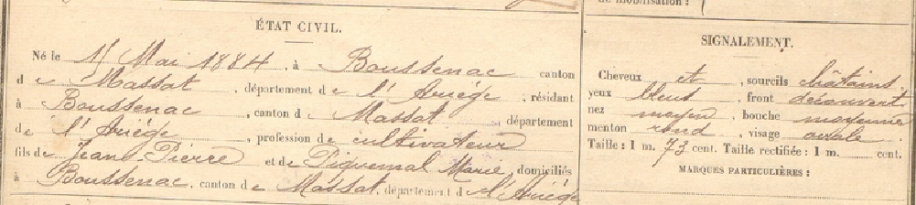 de mobilisation :
ÉTAT CIVIL.
Né le 1 Mai 1884, à Boussenac canton
de Massat, département de l'Ariége, résidant
à Boussenac, canton de Massat département
de l'Ariége, profession de cultivateur
fils de Jean Pierre et de Piquemal Marie domiciliés
à Boussenac, canton de Massat, département de l'Ariége
SIGNALEMENT.
Cheveux et , sourcils châtains
yeux bleus , front découvert
nez moyen , bouche moyenne
menton rond , visage ovale
Taille : 1 m. 73 cent. Taille rectifiée : 1 m. cent.
MARQUES PARTICULIÈRES :